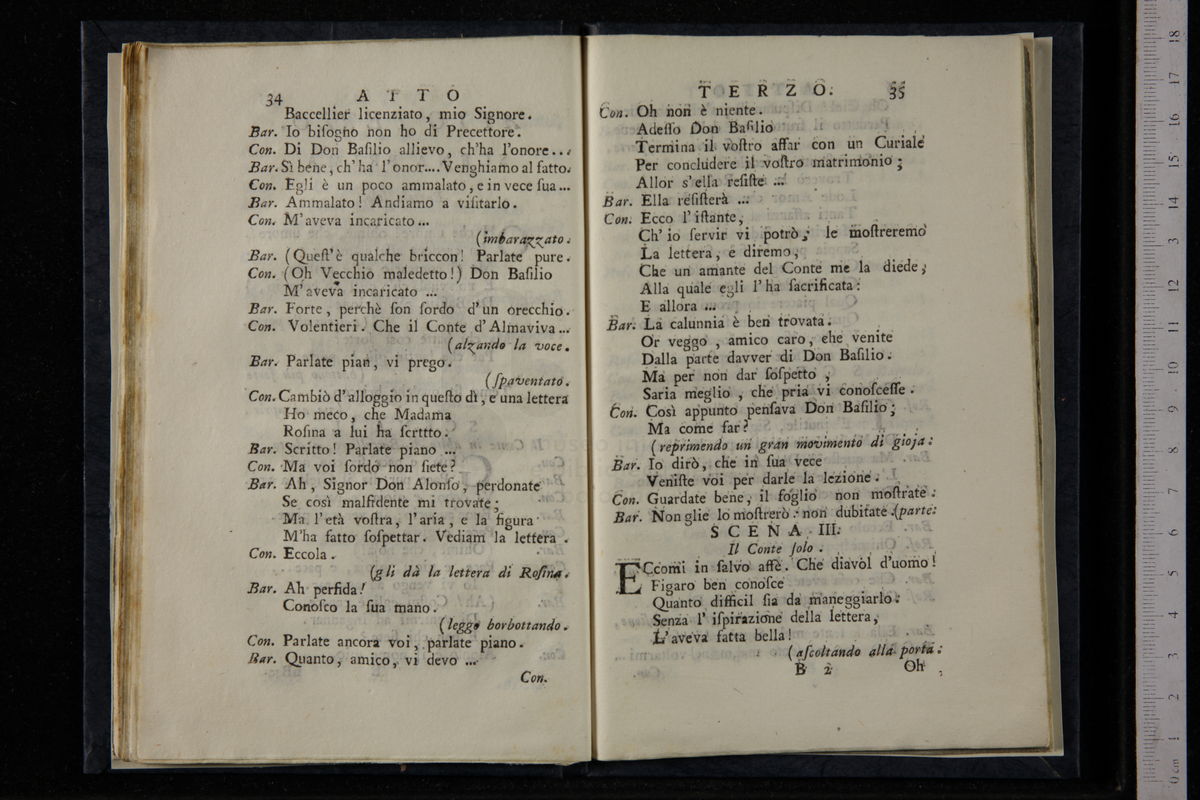 34 ATTO
Baccellier licenziato, mio Signore.
Bar. Io biſogno non ho di Precettore.
Con. Di Don Baſilio allievo, ch'ha l'onore...
Bar. Sì bene, ch'ha l'onor.... Venghiamo al fatto.
Con. Egli è un poco ammalato, e in vece ſua...
Bar. Ammalato! Andiamo a viſitarlo.
Con. M'aveva incaricato...
(imbarazzato.
Bar. (Queſt'è qualche briccon! Parlate pure.
Con. (Oh Vecchio maledetto!) Don Baſilio
M'aveva incaricato ...
Bar. Forte, perchè ſon ſordo d'un orecchio.
Con. Volentieri. Che il Conte d'Almaviva...
(alzando la voce.
Bar. Parlate pian, vi prego.
(ſpaventato.
Con. Cambiò d'alloggio in queſto dì, e una lettera
Ho meco, che Madama
Roſina a lui ha ſcrtto.
Bar. Scritto! Parlate piano ...
Con. Ma voi ſordo non ſiete?
Bar. Ah, Signor Don Alonſo, perdonate
Se così malfidente mi trovate;
Ma l'età voſtra, l'aria, e la figura
M'ha fatto ſoſpettar. Vediam la lettera.
Con. Eccola.
(gli dà la lettera di Roſina.
Bar. Ah perfida!
Conoſco la ſua mano.
(legge borbottando.
Con. Parlate ancora voi, parlate piano.
Bar. Quanto, amico, vi devo ...
Con.
TERZO. 35
Con. Oh non è niente.
Adeſſo Don Baſilio
Termina il voſtro affar con un Curiale
Per concludere il voſtro matrimonio;
Allor s'ella reſiſte ...
Bar. Ella reſiſterà ...
Con. Ecco l'iſtante,
Ch'io ſervir vi potrò; le moſtreremo
La lettera, e diremo,
Che un amante del Conte me la diede,
Alla quale egli l'ha ſacrificata:
E allora ...
Bar. La calunnia è ben trovata.
Or veggo, amico caro, che venite
Dalla parte davver di Don Baſilio.
Ma per non dar ſoſpetto,
Saria meglio, che pria vi conoſceſſe.
Con. Così appunto penſava Don Baſilio;
Ma come far?
(reprimendo un gran movimento di gioja.
Bar. Io dirò, che in ſua vece
Veniſte voi per darle la lezione.
Con. Guardate bene, il foglio non moſtrate.
Bar. Non glie lo moſtrerò: non dubitate. (parte.
SCENA III.
Il Conte ſolo.
ECcomi in ſalvo affè. Che diavol d'uomo!
Figaro ben conoſce
Quanto difficil ſia da maneggiarlo.
Senza l'iſpirazione della lettera,
L'aveva fatta bella!
(aſcoltando alla porta.
B 2 Oh